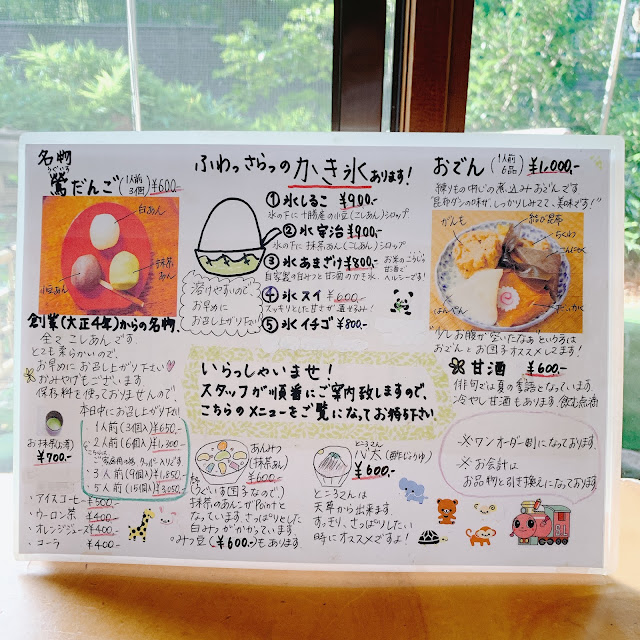 名物
うぐいす
鶯だんご(1人前3個)¥600.-
白あん
抹茶あん
小豆あん
創業(大正4年)からの名物。
全て こしあんです。
とても柔らかいので、
お早めにお召し上がり下さい
おみやげもございます。
保存料を使っておりませんので
本日中にお召し上がり下さい!
1人前(3個入)¥650.-
2人前(6個入)¥1,300.-
3人前(9個入)¥1,850.-
5人前(15個入)¥3,050.-
お抹茶
¥700.-
・アイスコーヒー ¥500.-
・ウーロン茶 ¥400.-
・オレンジジュース ¥400.-
・コーラ ¥400.-
ふわっさらっの かき氷 あります!
① 氷しるこ ¥900.-
氷の下に十勝産の小豆(こしあん)シロップ
② 氷宇治 ¥900.-
氷の下に抹茶あん(こしあん)シロップ
③ 氷あまざけ ¥800.-
自家製の甘みつと甘酒のかき氷。
お米のこうじ
甘酒で
ヘルシーです!
④ 氷スイ ¥600.-
スッキリとした甘さが夏せるみ!
⑤ 氷イチゴ ¥800.-
溶けやすいので、
お早めに
お召し上がり下さい
いらっしゃいませ!
スタッフが順番にご案内致しますので、
こちらのメニューをご覧になってお待ち下さい。
あんみつ
(抹茶あん)
¥600.-
(うぐいす団子なので)
抹茶のあんこがPointと
なっています。さっぱりとした
白みつがかかっています。
みつ豆(¥600.-)もあります。
ところてん
心太(酢じょうゆ)
¥600.-
ところてんは
天草から出来ます。
すっきり、さっぱりしたい
時にオススメですよ!
おでん(1人前6品)¥1,000.-
練りもの中心の煮込みおでんです
"昆布ダシの味が、しっかりしみてて、美味です!"
がんも
結び昆布
ちくわ
こんにゃく
はんぺん
少しお腹が空いたなぁという方は
おでんとお団子オススメしてます!
甘酒 ¥600.-
俳句では夏の季語となっています。
冷やし甘酒もあります。飲む点滴
※ワンオーダー制になっております。
※お会計は
お品物と引き換えになっております